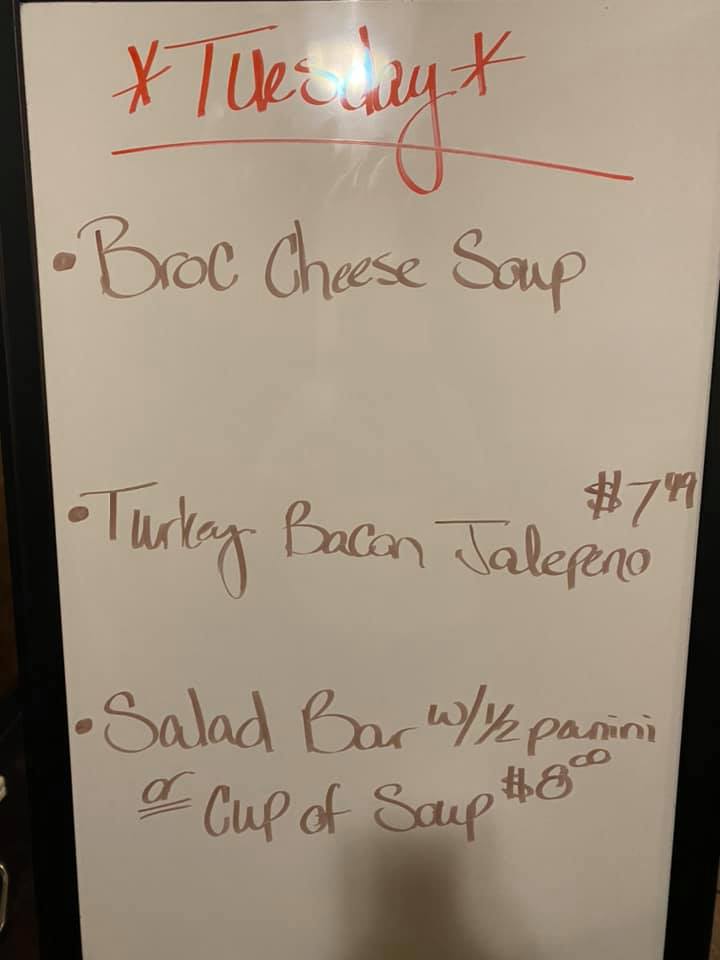 *Tuesday*
• Broc Cheese Soup
$7.49
• Turkey Bacon Jalepeno
• Salad Bar w/ 1/2 panini
or Cup of Soup $8.00